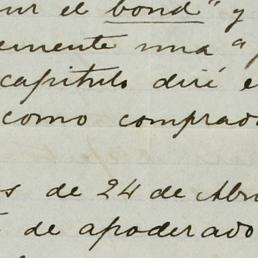 el bond" y
una "
capitulo diré e
como comprad
s de 24 de Abr
de apoderado